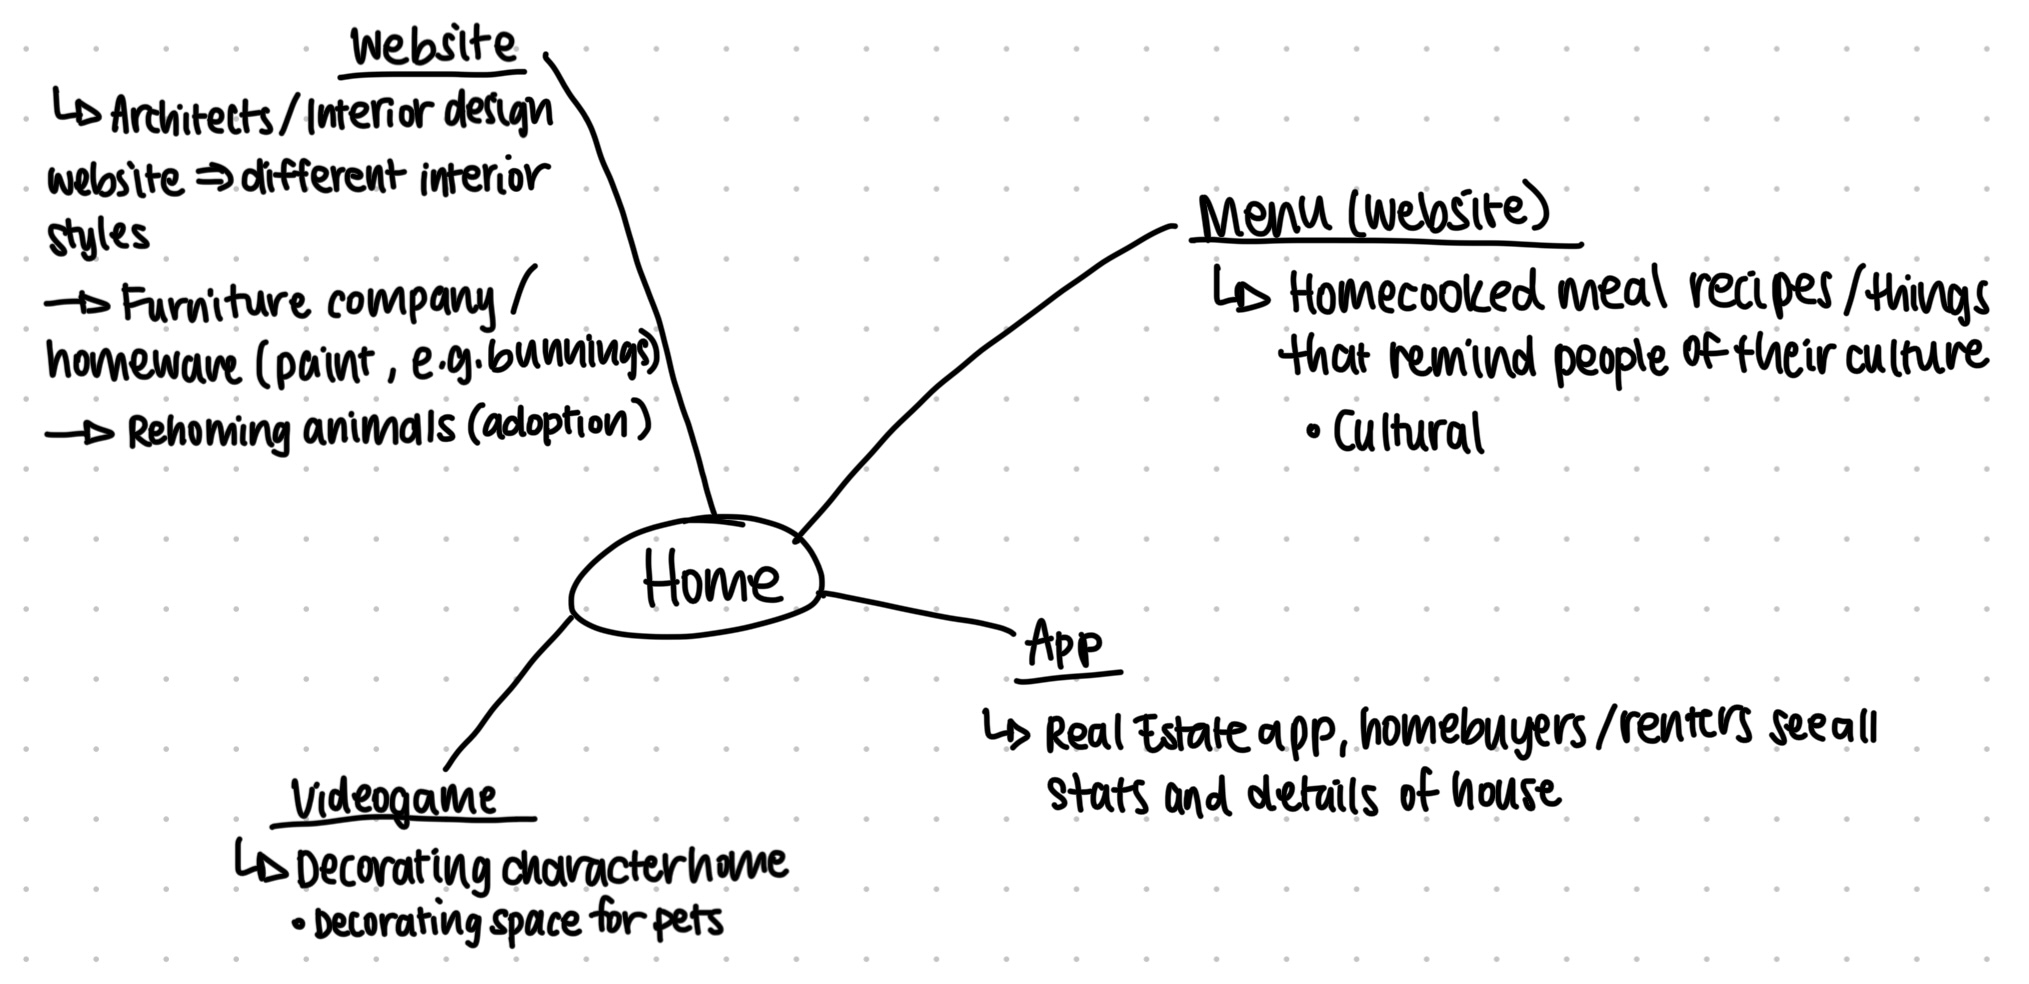 Website
↳ Architects/Interior design
website ⇒ different interior
styles
→ Furniture company /
homeware (paint, e.g. bunnings)
→ Rehoming animals (adoption)
Menu (website)
↳ Homecooked meal recipes/things
that remind people of their culture
• Cultural
Home
App
↳ Real Estate app, homebuyers/renters see all
stats and details of house
Videogame
↳ Decorating character home
• Decorating space for pets